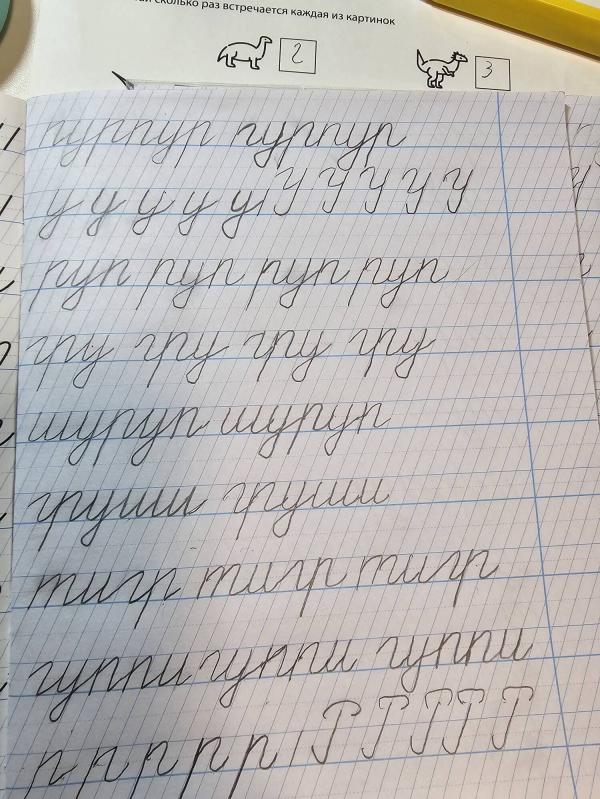 сколько раз встречается каждая из картинок
2 3
пурпур пурпур
у у у у у У У У У У
руп руп руп руп
гру гру гру гру
шуруп шуруп
груши груши
тигр тигр тигр
гуппи гуппи гуппи
р р р р р Р Р Р Р Р